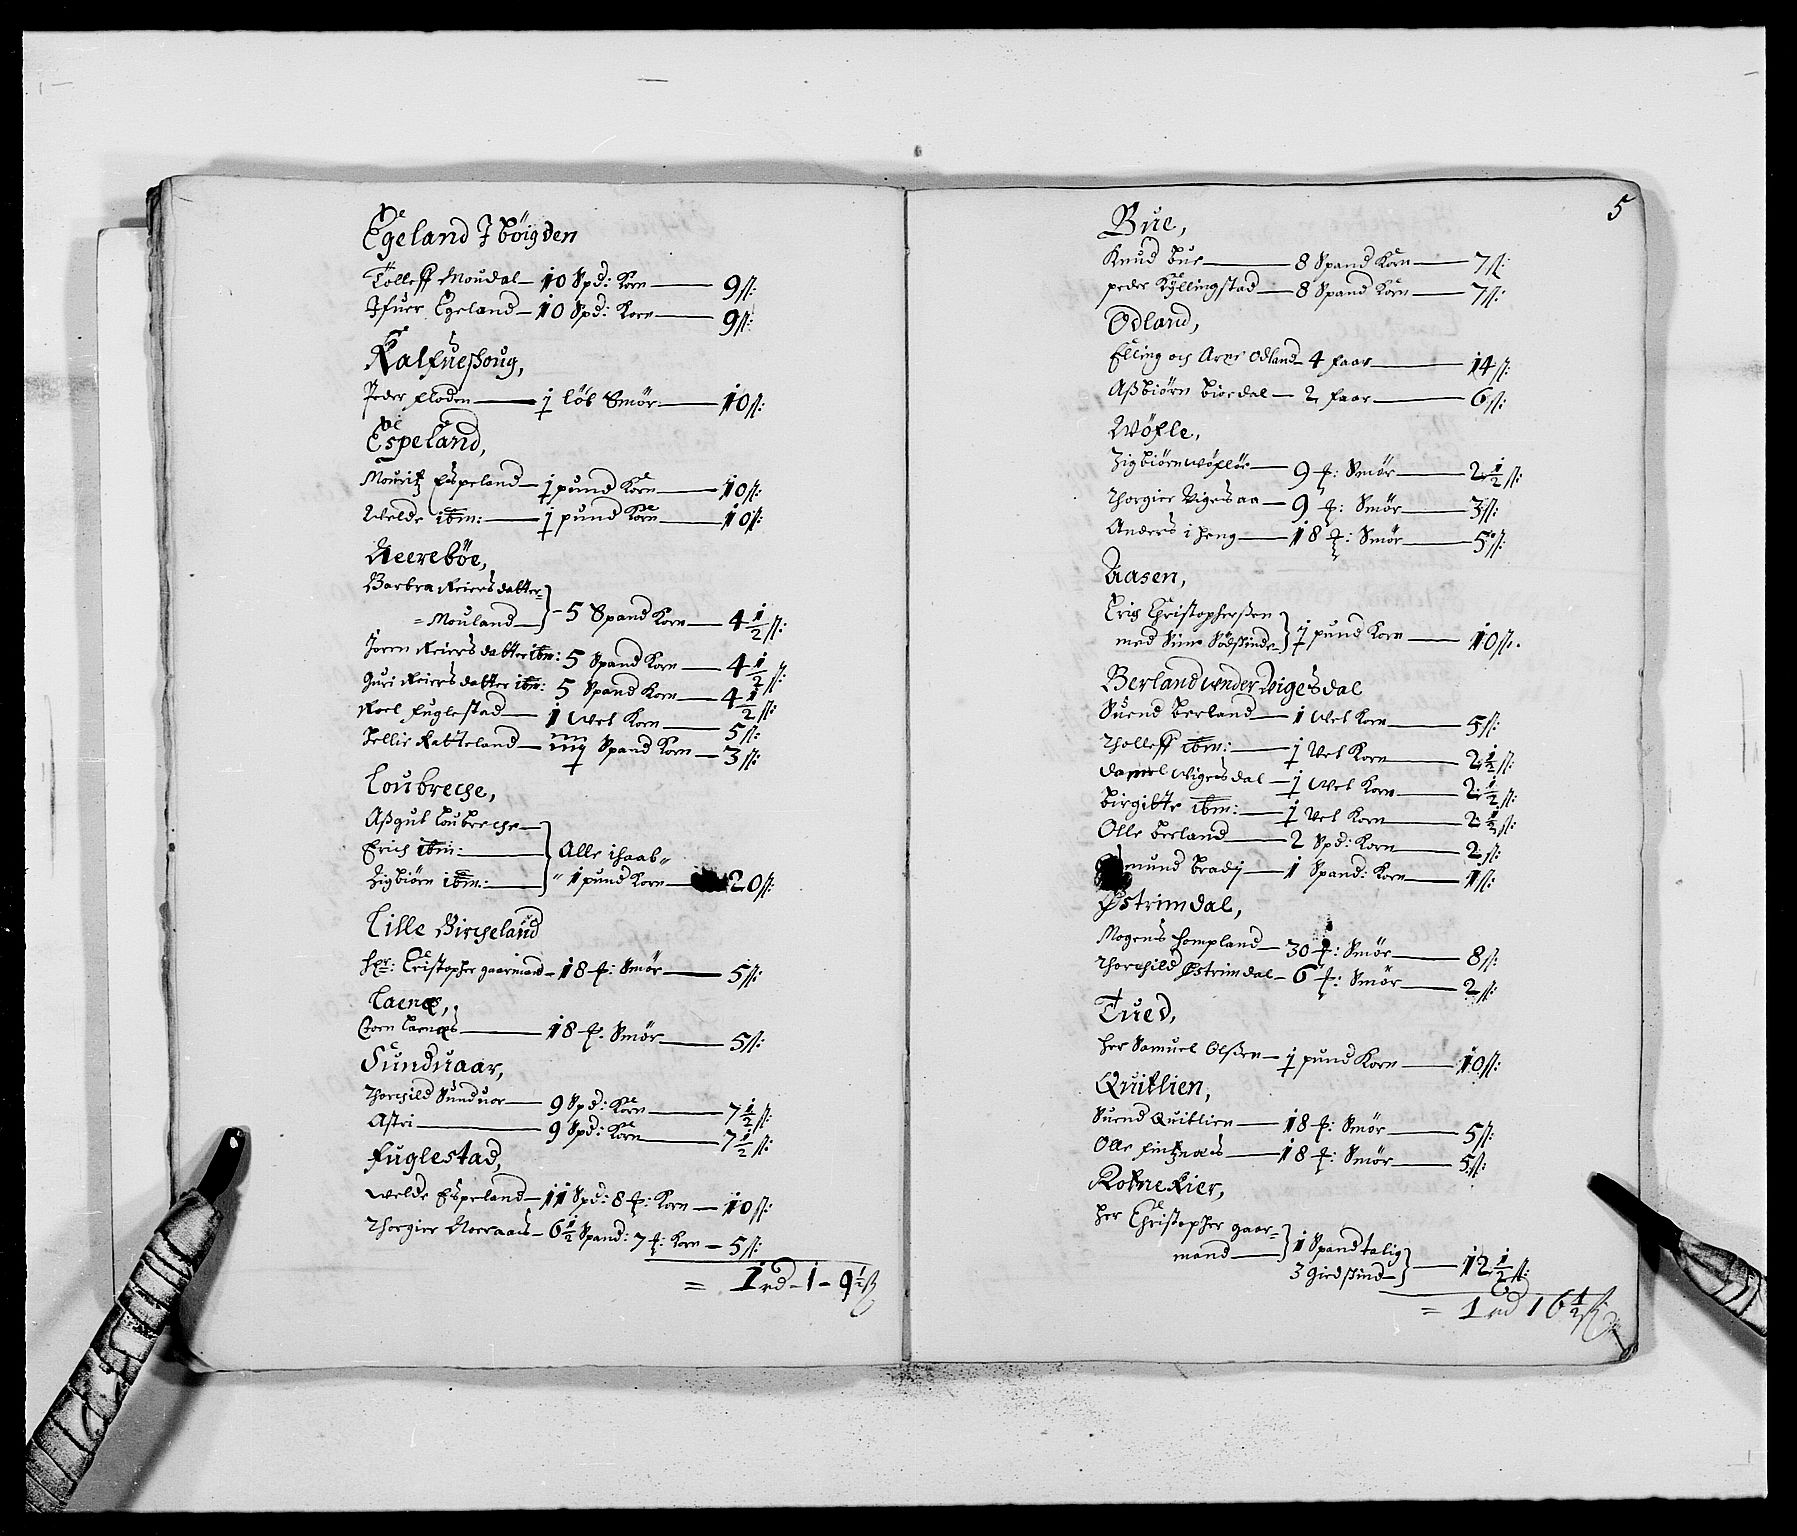 Egeland I böigden
Tolleff Moudal — 10 Spd: Korn — 9 ß:
Ifuer Egeland — 10 Spd: Korn — 9 ß:
Kalfueshoug,
Peder floden — j löb Smör — 10 ß:
Espeland,
Mouritz Espeland — j pund Korn — 10 ß:
Welde ibm: — j pund Korn — 10 ß:
Neereböe,
Barbra Reiersdatter
= Mouland — 5 Spand Korn — 4½ ß:
Joren Reiersdatter ibm: 5 Spand Korn — 4½ ß:
Guri Reiersdatter ibm: 5 Spand Korn — 4½ ß:
Roel fuglestad — 1 Wet Korn — 5 ß:
Pellie Ratteland — iiij Spand Korn — 3 ß:
Loubreche,
Aßgut Loubreche —
Erich ibm: — Alle ihaab
Zigbiörn ibm: — 1 pund Korn — 20 ß:
Lille Bircheland
Hr: Christopher gaarmand — 18 ₰: Smör — 5 ß:
Laenæs,
Corn Laenæs — 18 ₰: Smör — 5 ß:
Sunduaar,
Thorchild Sunduor — 9 Spd: Korn — 7½ ß:
Astri — 9 Spd: Korn — 7½ ß:
Fuglestad,
Welde Espeland — 11 Spd: 8 ₰: Korn — 10 ß:
Thorgier Noeraas — 6½ Spand: 7 ₰: Korn — 5 ß:
= 1 rd — 1 — 9½ ß
5
Bue,
Knud bue — 8 Spand Korn — 7 ß:
peder Kyllingstad — 8 Spand Korn — 7 ß:
Odland,
Elling och Arne Odland — 4 faar — 14 ß:
Aßbiörn biordal — 2 faar — 6 ß:
Wöfle,
Zigbiörn wöfle — 9 ₰: Smör — 2½ ß:
Thorgier Vigesaa — 9 ₰: Smör — 3 ß:
Anders i heng — 18 ₰: Smör — 5 ß:
Aasen,
Erich Christophersen
med Sine Södskinde — j pund Korn — 10 ß.
Berland under Vigesdal
Suend berland — 1 Wet Korn — 5 ß:
Tholleff ibm: — j Vet Korn — 2½ ß:
Daniel Wigesdal — j Wet Korn — 2½ ß:
Birgitte ibm: — j Vet Korn — 2½ ß:
Olle berland — 2 Spd: Korn — 2 ß:
mund bradij — 1 Spand: Korn — 1 ß:
Østrimdal,
Mogens hompland — 30 ₰: Smör — 8 ß:
Thorchild Østrimdal — 6 ₰: Smör — 2 ß:
Tued,
Her Samuel Olßen — j pund Korn — 10 ß:
Quitlien,
Suend Quitlien — 18 ₰: Smör — 5 ß:
Olle fintznæs — 18 ₰: Smör — 5 ß:
Rotnekier,
Her Christopher gaar-
mand — 1 Spand talig
3 giedskind — 12½ ß:
= 1 rd 1 6½ ß